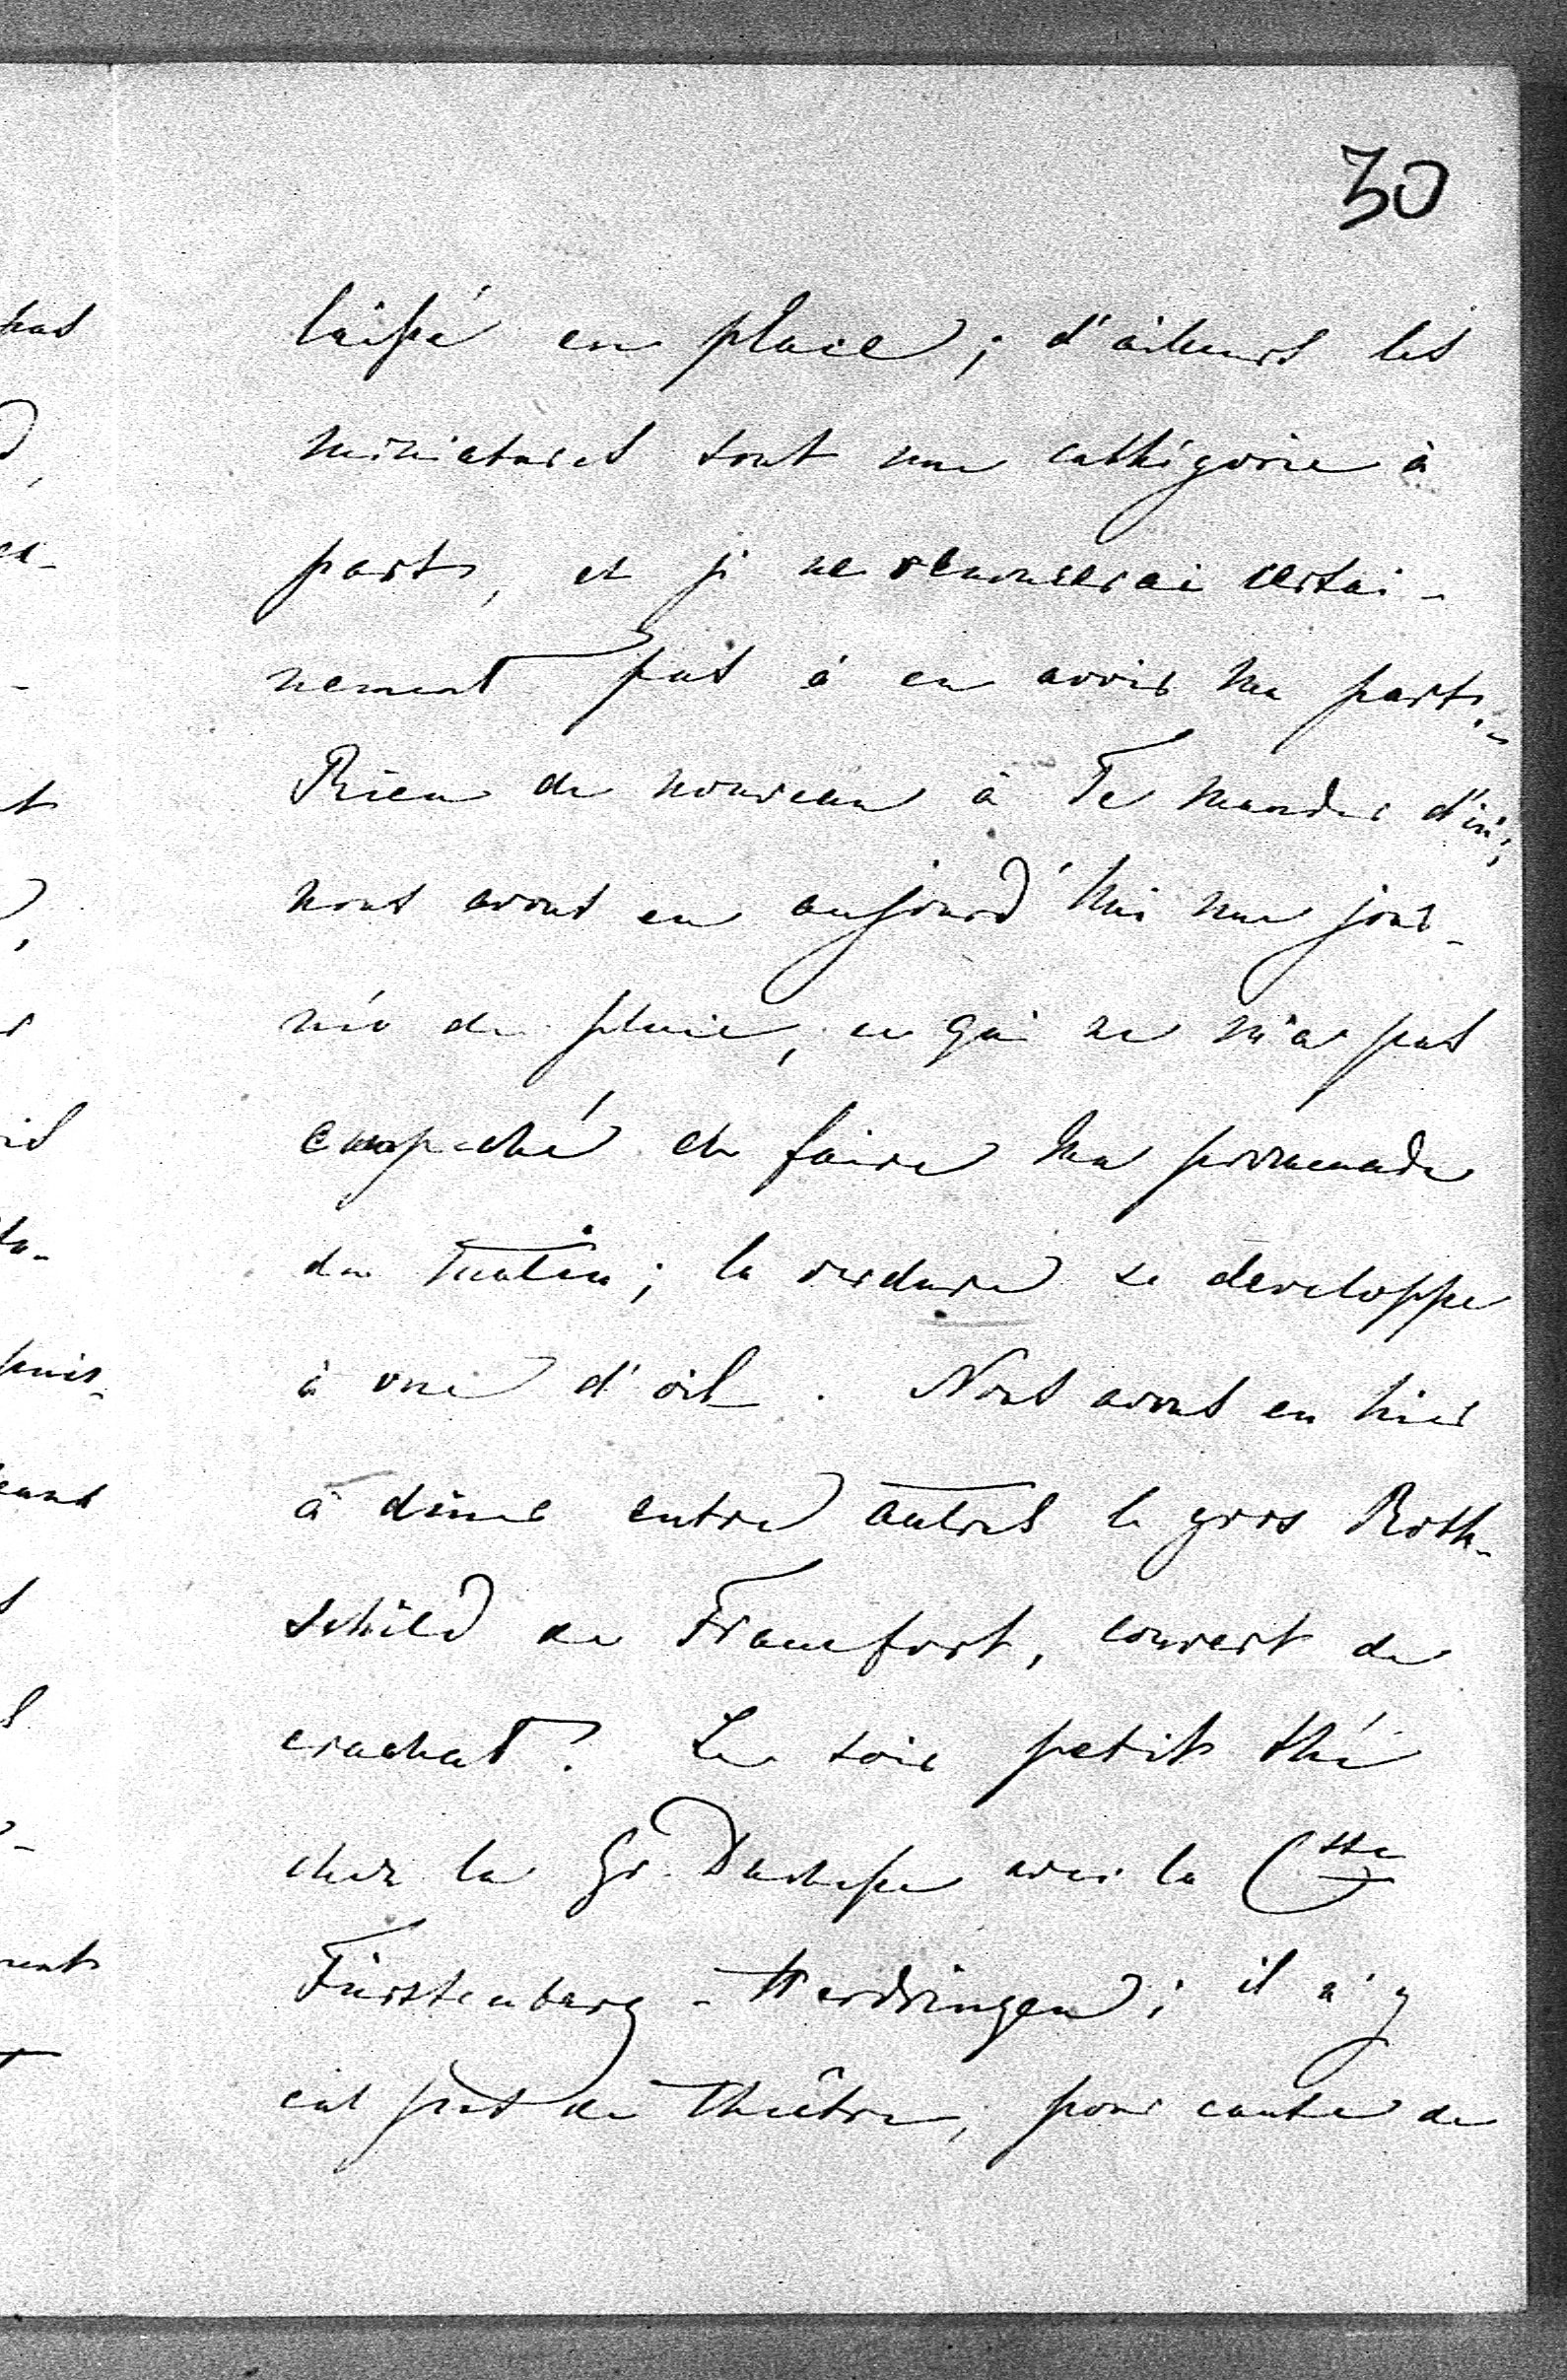 30
laissé en place; d'ailleurs les
miniatures sont une cathégorie à
part, et je ne renoncerai certai-
nement pas à en avoir ma part.-
Rien de nouveau à Te mander d'ici;
nous avons eu aujourd'hui une jour-
née de pluie, ce qui ne m'a pas
empeché de faire ma promenade
du matin; la verdure se developpe
à vue d'oeil. Nous avons eu hier
à diner entre autres le gros Roth-
schild de Francfort, couvert de
crachats! Le soir petit thé
chez la Gr. Duchesse avec la Ctsse
Fürstenberg-Herdringen; il n'y
eut pas de théâtre, pour cause de